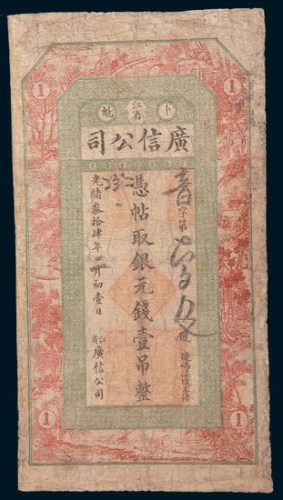 1
1
卜
江省
廣信公司
字第
憑帖取銀元錢壹吊整
光緒叁拾肆年 月初壹日
江省
廣信公司
1
1